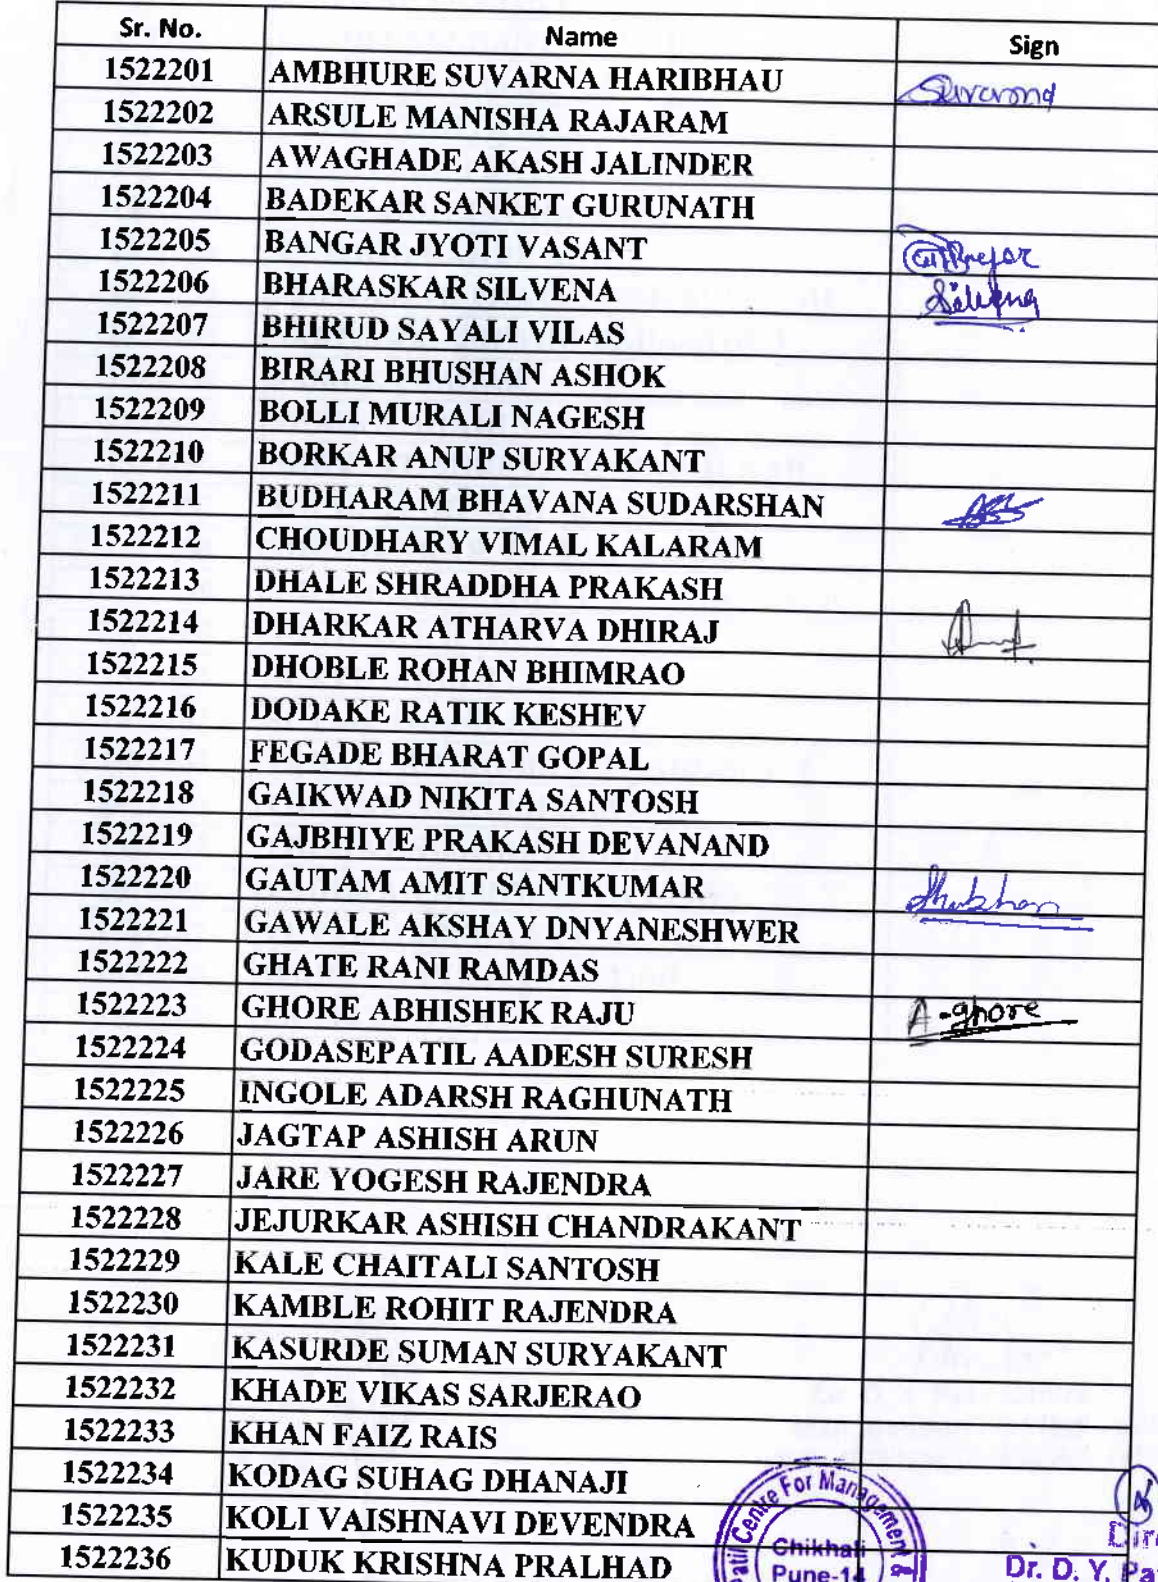 Sr. No. Name Sign
1522201 AMBHURE SUVARNA HARIBHAU Suvarna
1522202 ARSULE MANISHA RAJARAM
1522203 AWAGHADE AKASH JALINDER
1522204 BADEKAR SANKET GURUNATH
1522205 BANGAR JYOTI VASANT
1522206 BHARASKAR SILVENA Silvena
1522207 BHIRUD SAYALI VILAS
1522208 BIRARI BHUSHAN ASHOK
1522209 BOLLI MURALI NAGESH
1522210 BORKAR ANUP SURYAKANT
1522211 BUDHARAM BHAVANA SUDARSHAN
1522212 CHOUDHARY VIMAL KALARAM
1522213 DHALE SHRADDHA PRAKASH
1522214 DHARKAR ATHARVA DHIRAJ
1522215 DHOBLE ROHAN BHIMRAO
1522216 DODAKE RATIK KESHEV
1522217 FEGADE BHARAT GOPAL
1522218 GAIKWAD NIKITA SANTOSH
1522219 GAJBHIYE PRAKASH DEVANAND
1522220 GAUTAM AMIT SANTKUMAR
1522221 GAWALE AKSHAY DNYANESHWER
1522222 GHATE RANI RAMDAS
1522223 GHORE ABHISHEK RAJU A-ghore
1522224 GODASEPATIL AADESH SURESH
1522225 INGOLE ADARSH RAGHUNATH
1522226 JAGTAP ASHISH ARUN
1522227 JARE YOGESH RAJENDRA
1522228 JEJURKAR ASHISH CHANDRAKANT
1522229 KALE CHAITALI SANTOSH
1522230 KAMBLE ROHIT RAJENDRA
1522231 KASURDE SUMAN SURYAKANT
1522232 KHADE VIKAS SARJERAO
1522233 KHAN FAIZ RAIS
1522234 KODAG SUHAG DHANAJI
1522235 KOLI VAISHNAVI DEVENDRA
1522236 KUDUK KRISHNA PRALHAD
Patil Centre For Management &
Chikhali
Pune-14
Dire
Dr. D. Y. Pat